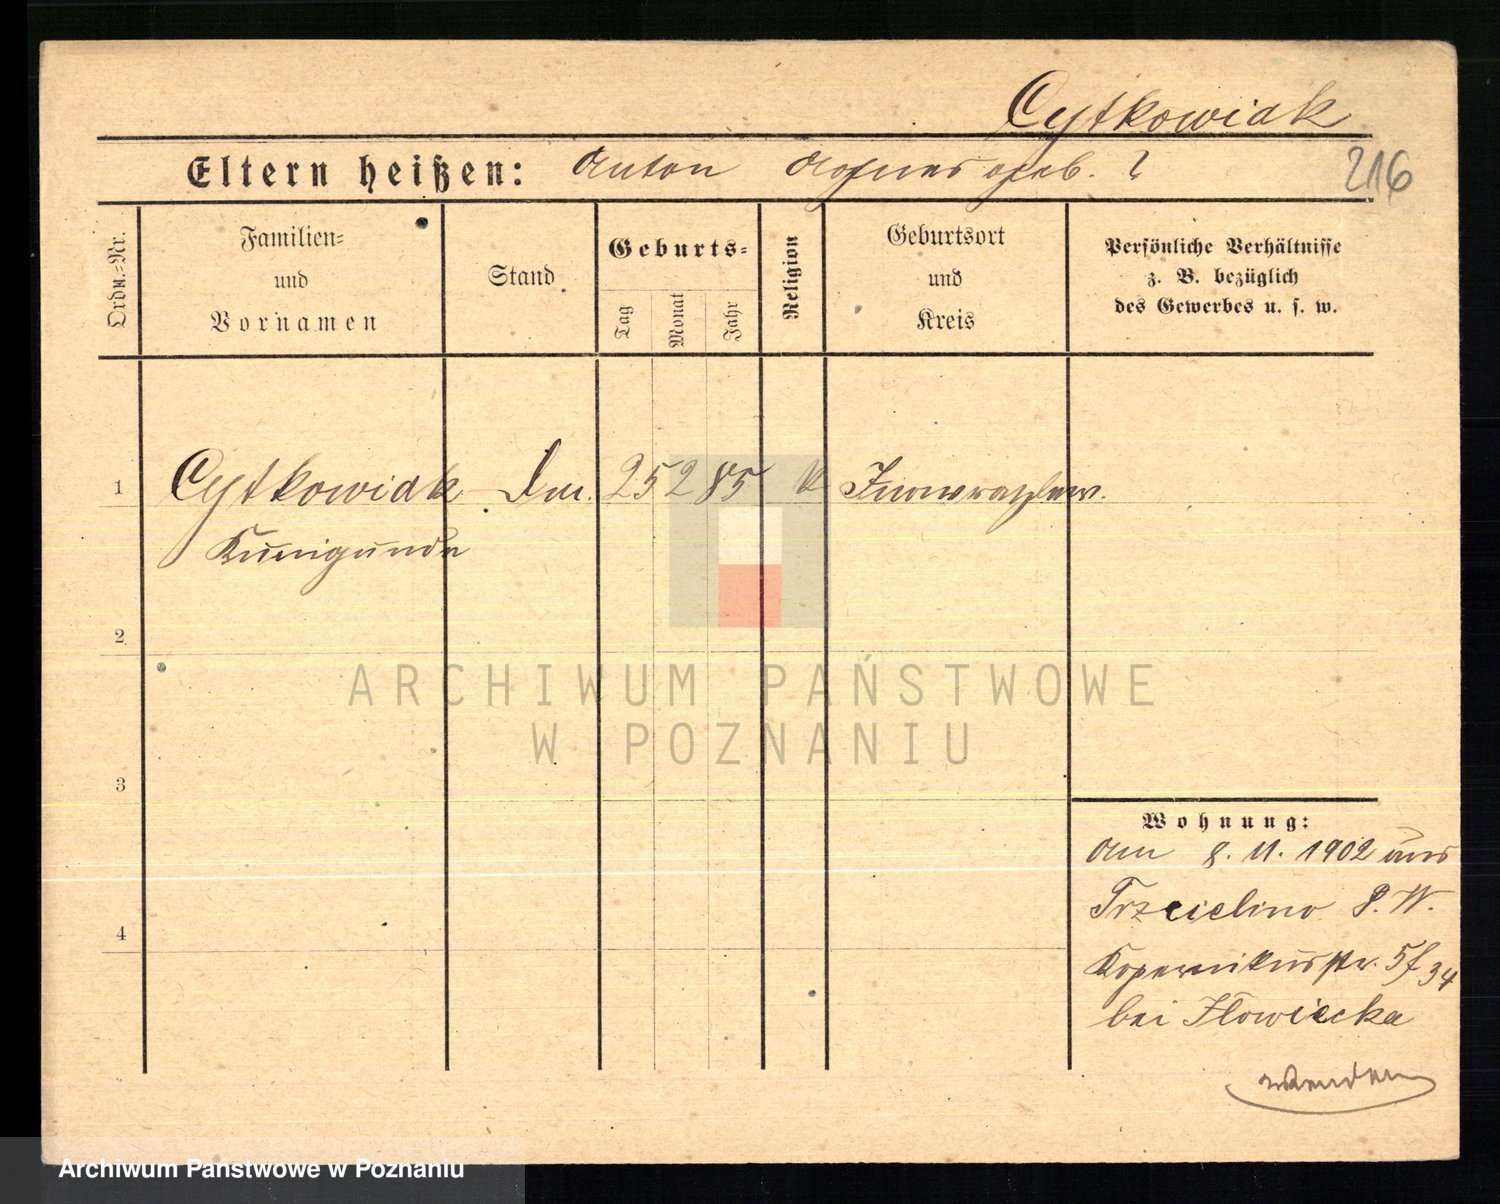 Cytkowiak
Eltern heißen: Anton Agnes geb. ?
216
Ordn.-Nr.
Familien-
und
Vornamen
Stand
Geburts-
Tag
Monat
Jahr
Religion
Geburtsort
und
Kreis
Persönliche Verhältnisse
z. B. bezüglich
des Gewerbes u. s. w.
1 Cytkowiak 25 2 85 k Inowrazlaw.
Kunigunde
2
3
4
Wohnung:
Am 8. 11. 1902 aus
Trzcielino P. W.
Kopernikusstr. 5
bei Iłowiecka
wenden
ARCHIWUM PAŃSTWOWE
W POZNANIU
Archiwum Państwowe w Poznaniu